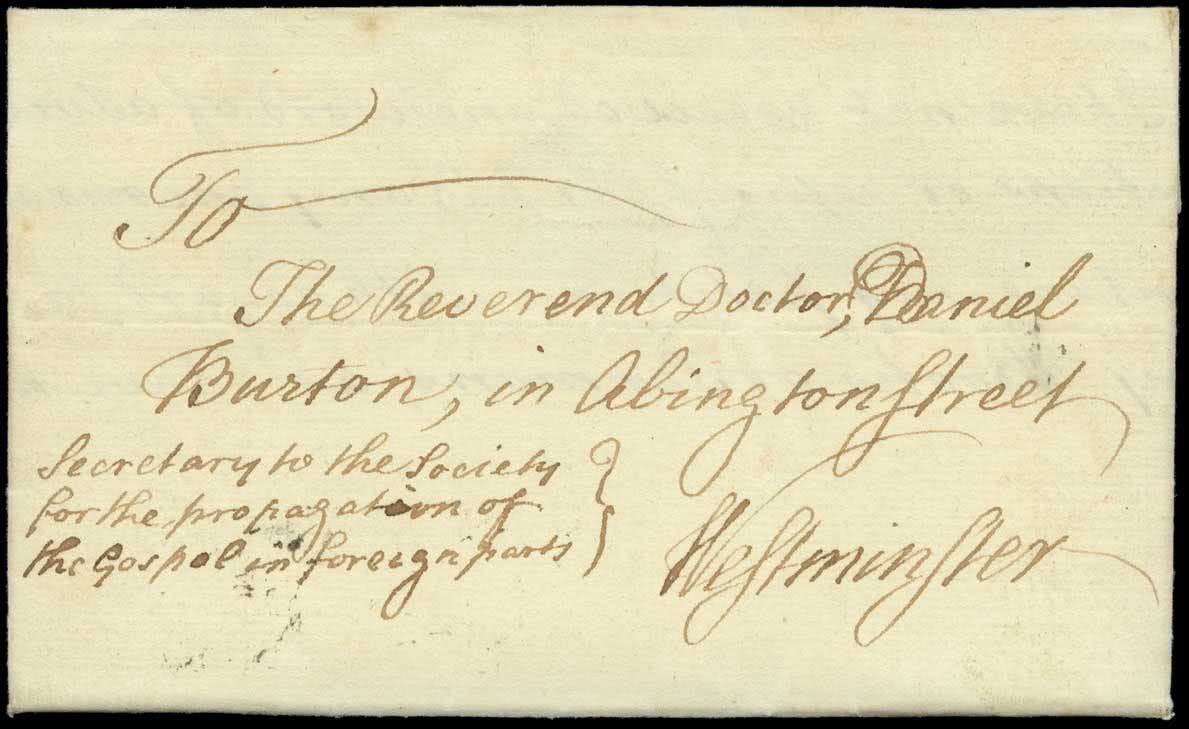 To
The Reverend Doctor, Daniel
Burton, in Abington Street
Secretary to the Society
for the propagation of
the Gospel in foreign parts
Westminster